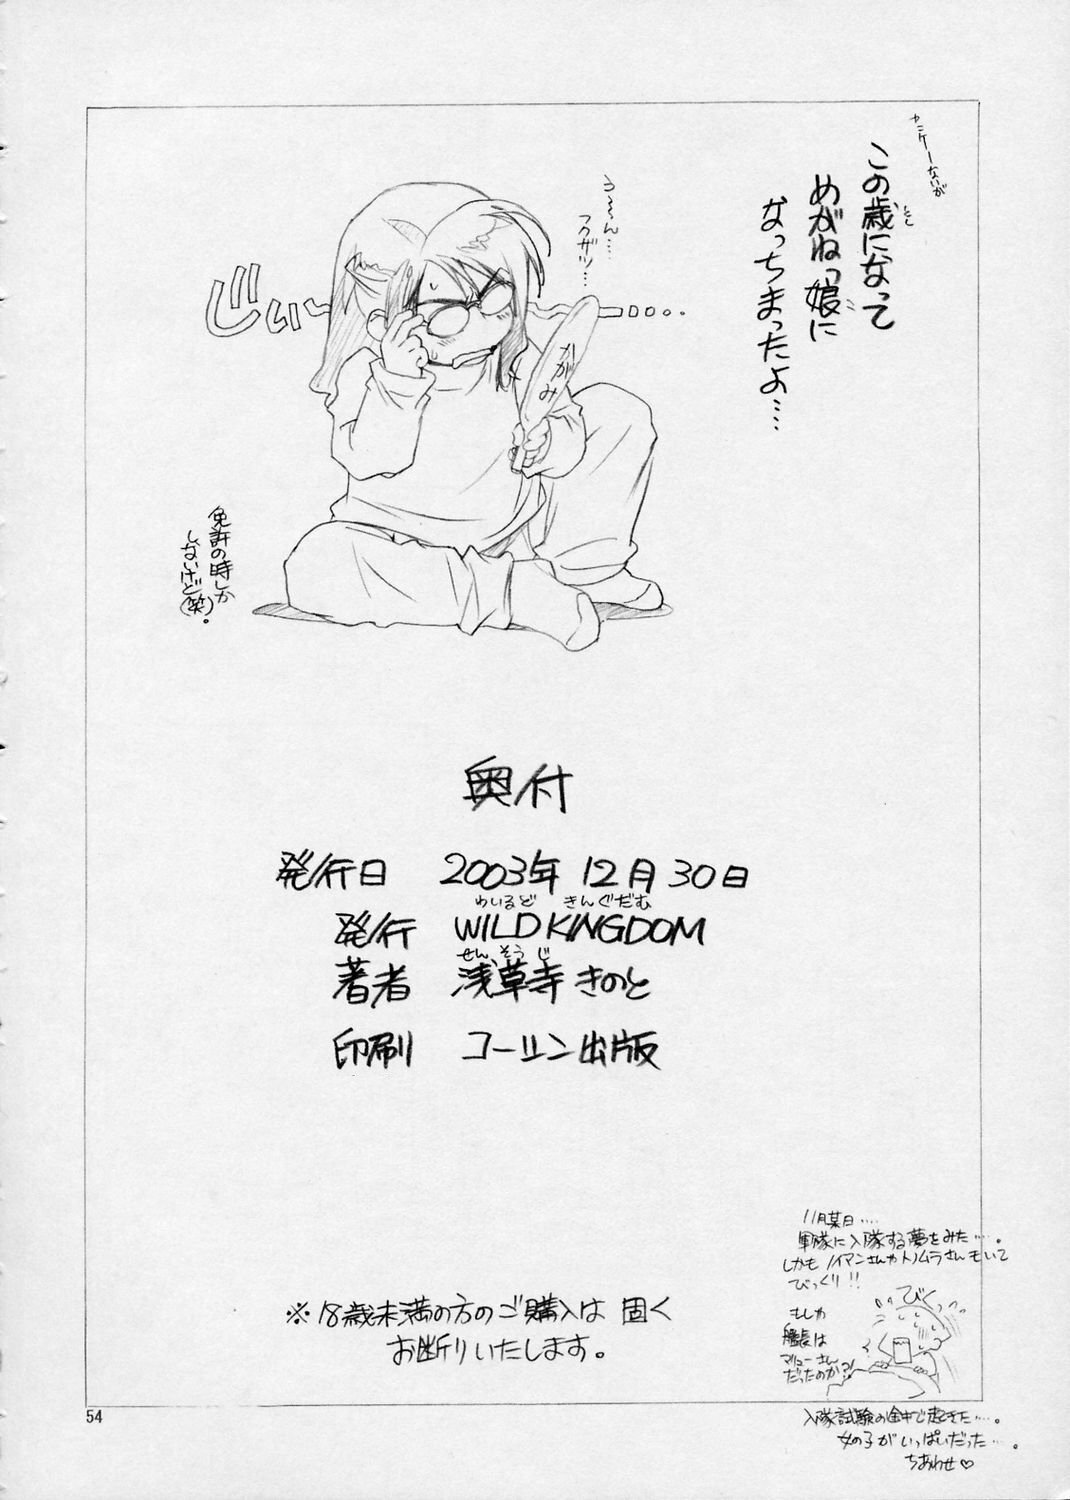 この歳になって
めがねっ娘に
なっちまったよ…
う〜ん…
フクザツ…
じぃ〜
かがみ
免許の時しか
しないけど(笑)。
奥付
発行日 2003年12月30日
わいるど きんぐだむ
発行 WILD KINGDOM
せんそうじ
著者 浅草寺きのと
印刷 コーシン出版
※18歳未満の方のご購入は固く
お断りいたします。
11月某日…
軍隊に入隊する夢をみた…。
しかもノイマンさんやトノムラさんもいて
びっくり!!
びくっ
もしか
艦長は
マリューさん
だったのか?!
54
入隊試験の途中で起きた…。
女の子がいっぱいだった…。
ちあわせ♡